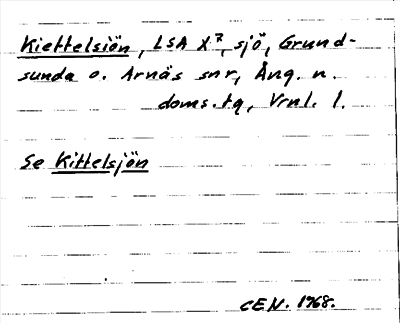 Kiettelsiön, LSA X 7, sjö, Grund-
sunda o. Arnäs snr, Ång. n.
doms.tg, Vrnl. l.
Se Kittelsjön
CEN. 1968.